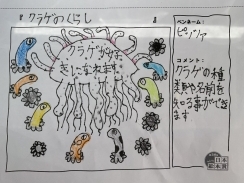 クラゲのくらし
クラゲが好
きになれます。
ペンネーム：
コメント：
クラゲの種
類や名前を
知る事ができ
ます